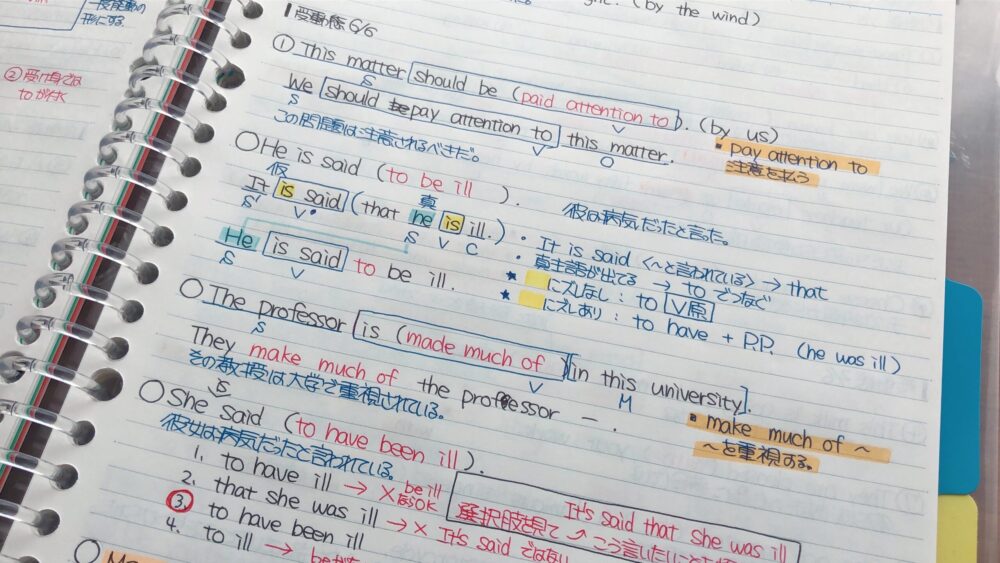 形にする。
(by the wind)
② 受け身では
toが付く
6/6
① This matter should be (paid attention to). (by us)
S V
We should pay attention to this matter.
S V O
この問題は注意されるべきだ。
▪ pay attention to
注意を払う
○He is said (to be ill ).
彼は病気だったと言った。
仮 真
It is said (that he is ill.)
S' V' S V C
・It is said〈〜と言われている〉→ that
・真主語が出てる → to でつなぐ
He is said to be ill.
S V
★ にズレなし : to V原
★ にズレあり : to have + P.P. (he was ill)
○ The professor is (made much of )[in this university].
S V M
They make much of the professor ―.
その教授は大学で重視されている。
▪ make much of 〜
〜を重視する。
S
○She said (to have been ill ).
彼女は病気だったと言われている。
1. to have ill → × be ill ならOK
2. that she was ill → × It's said ではない
3. to have been ill
4. to ill →
It's said that she was ill
選択肢を見て こう言いたい